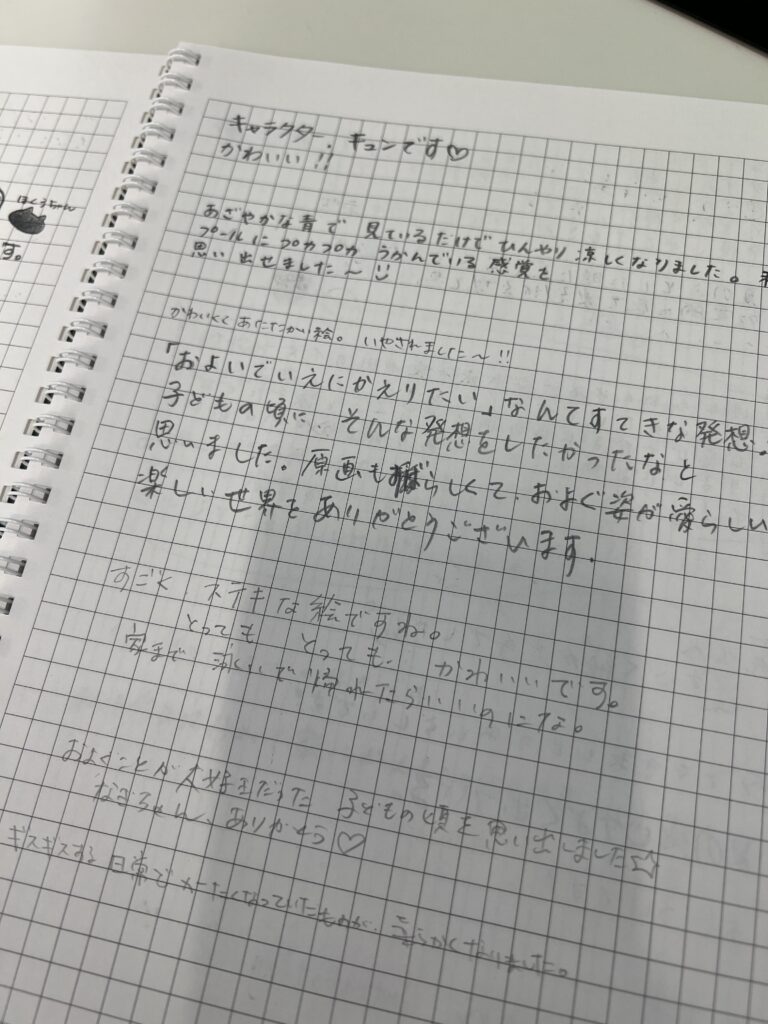 ほくろちゃん
す。
キャラクター、キュンです♡
かわいい!!
あざやかな青で 見ているだけで ひんやり 涼しくなりました。
プールに プカプカ うかんでいる 感覚を
思い出せました〜
かわいくて あたたかい絵。 いやされました〜!!
「およいでいえにかえりたい」なんてすてきな発想。
子どもの頃に、そんな発想をしたかったなと
思いました。原画も らしくて、およぐ姿が愛らしい
楽しい世界をありがとうございます。
すごく ステキな絵ですね。
とっても とっても、かわいいです。
家まで 泳いで帰れたらいいのにな。
およぐことが大好きだった 子どもの頃を思い出しました☆
なぎちゃん、ありがとう♡
ギスギスする 日常で かたくなっていたものが、 やわらかくなりました。